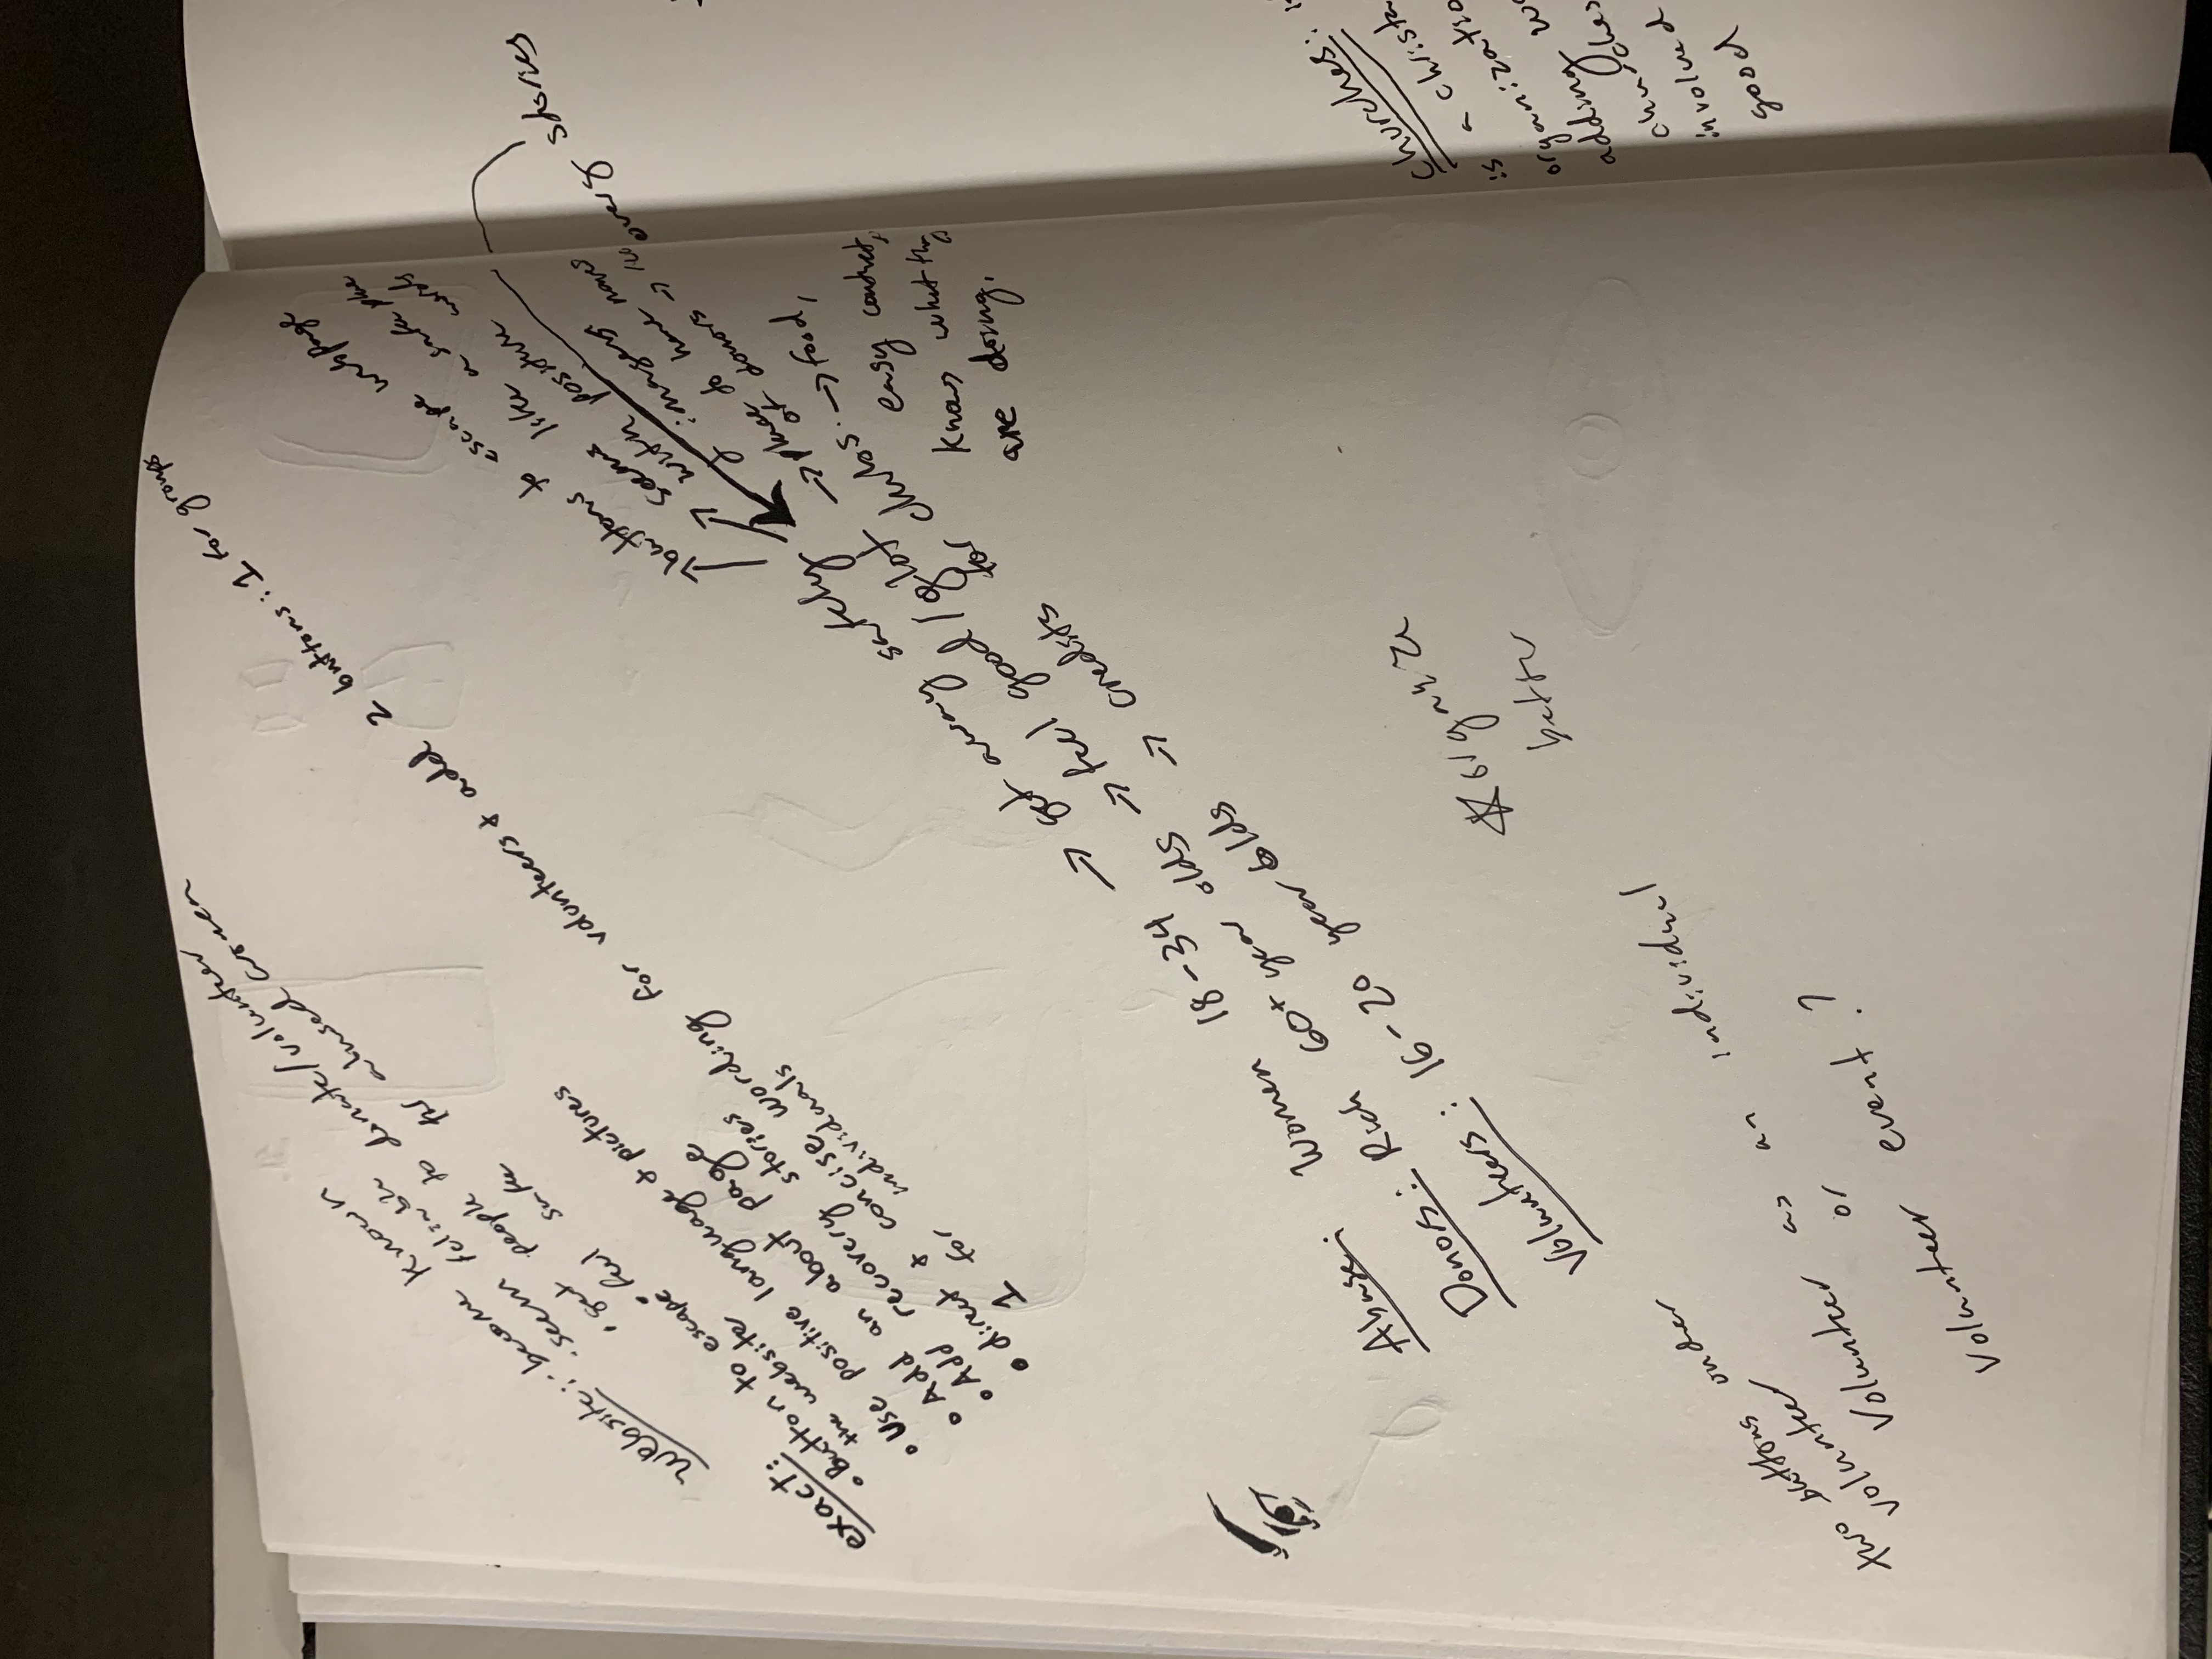 Website: · become known
· seem reliable
· get people to donate/volunteer
for abused women
• feel safe
exact:
• Button to escape
the website
• Use positive language + pictures
• Add an about page
• Add recovery stories
• direct + concise wording for volunteers + add 2 buttons: 1 for groups
1 for individuals
→ buttons to escape webpage
→ seems like a safe place
with positive words
+ images
Abuse: Women 18-34 → get away safely
Donors: Rich 60+ year olds → feel good/
→ place to have names
of donors →
overy stories
Volunteers: 16-20 year olds → credits for clubs. → food,
easy contact,
knows what they
are doing.
☆ organize
better
two buttons under
volunteer
Volunteer as an individual
or
Volunteer event?
churches:
is a christ
organizatio
adding
churches
involved
good